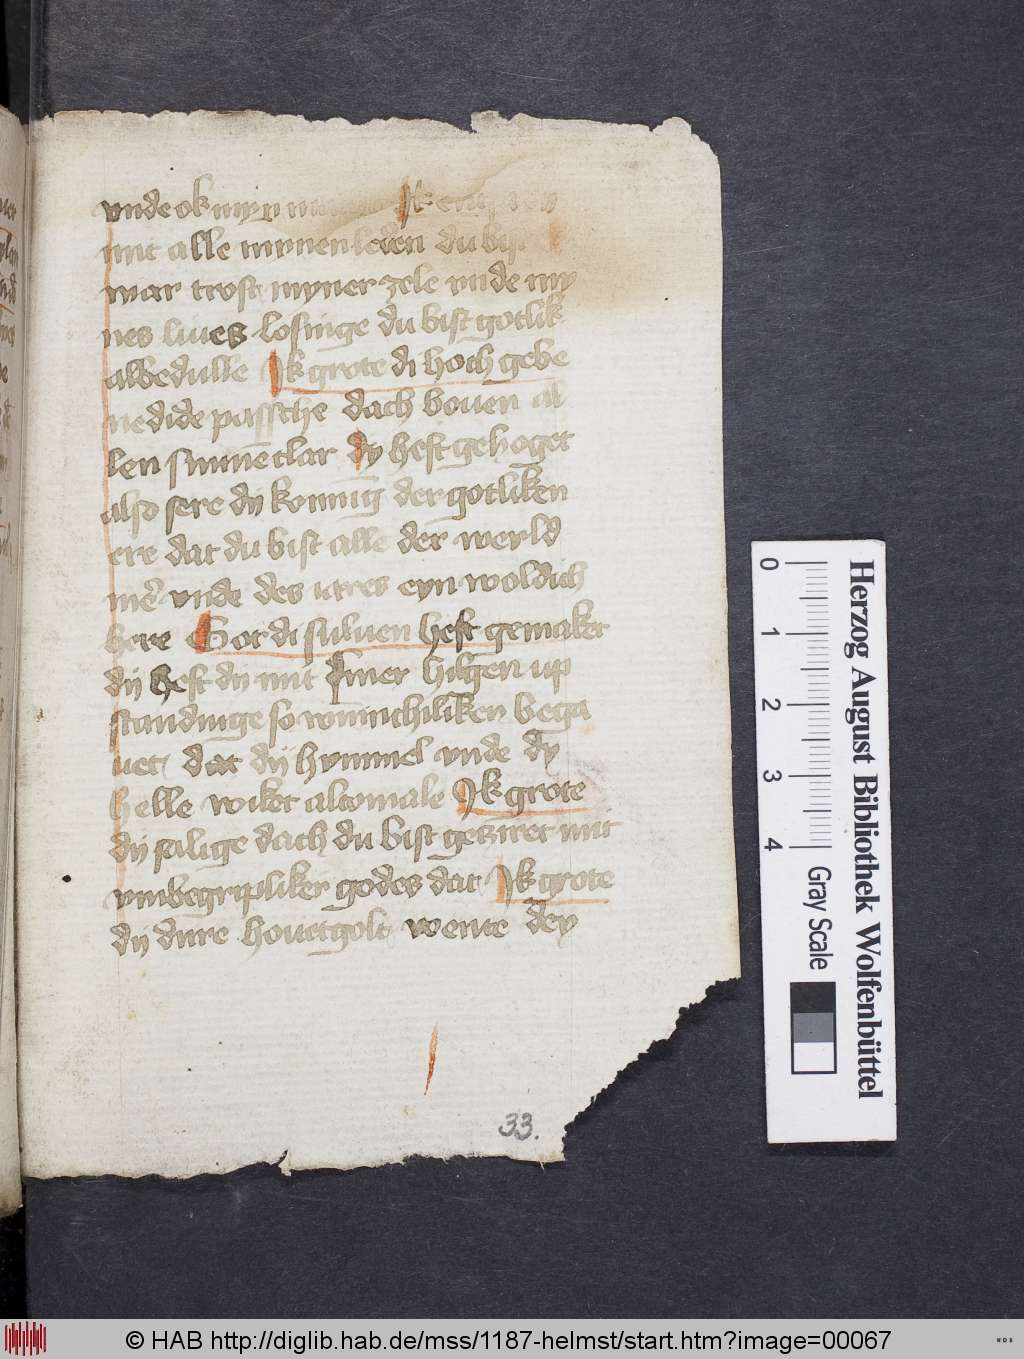 vnde ok myn
mit alle mynen leden du bist
war trost myner zele vnde my
nes liues losinge du bist gotlik
albedulle Jk grote di hoch gebe
nedide passche dach bouen al
len sunnen clar dy heft gehoget
also sere dij konnig der gotliken
ere dat du bist alle der werld
mer vnde des iares eyn woldich
here Got di suluen heft gemaket
dij heft dij mit siner hilgen up
standinge so wunnchiliken bega
uet dat dij hymmel vnde dy
helle wiket altomale Jk grote
dij salige dach du bist getziret mit
vmbegripliker godes dat Jk grote
dij dure houetgolt wente dey
33.
Herzog August Bibliothek Wolfenbüttel
0 1 2 3 4 Gray Scale
© HAB http://diglib.hab.de/mss/1187-helmst/start.htm?image=00067